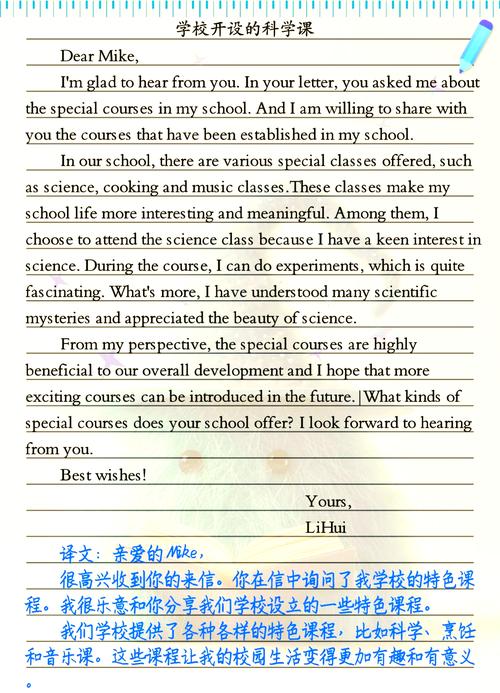 学校开设的科学课
Dear Mike,
I'm glad to hear from you. In your letter, you asked me about
the special courses in my school. And I am willing to share with
you the courses that have been established in my school.
In our school, there are various special classes offered, such
as science, cooking and music classes.These classes make my
school life more interesting and meaningful. Among them, I
choose to attend the science class because I have a keen interest in
science. During the course, I can do experiments, which is quite
fascinating. What's more, I have understood many scientific
mysteries and appreciated the beauty of science.
From my perspective, the special courses are highly
beneficial to our overall development and I hope that more
exciting courses can be introduced in the future.|What kinds of
special courses does your school offer? I look forward to hearing
from you.
Best wishes!
Yours,
LiHui
译文：亲爱的Mike，
很高兴收到你的来信。你在信中询问了我学校的特色课
程。我很乐意和你分享我们学校设立的一些特色课程。
我们学校提供了各种各样的特色课程，比如科学、烹饪
和音乐课。这些课程让我的校园生活变得更加有趣和有意义
。